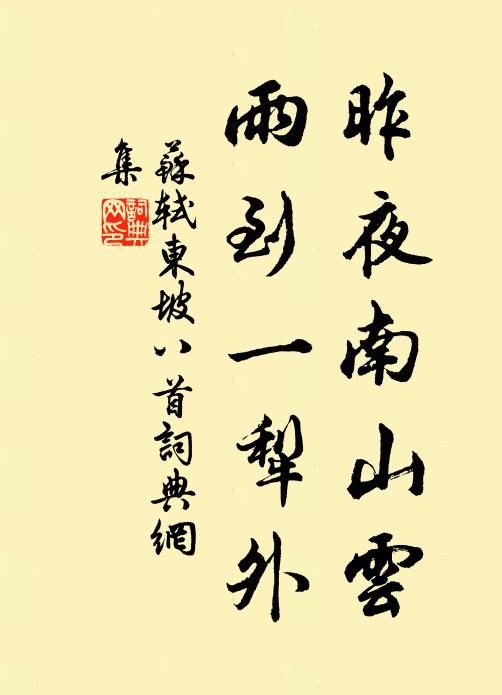 昨夜南山雲
雨到一犁外
蘇軾東坡八首詞典網
集
詞典
网印